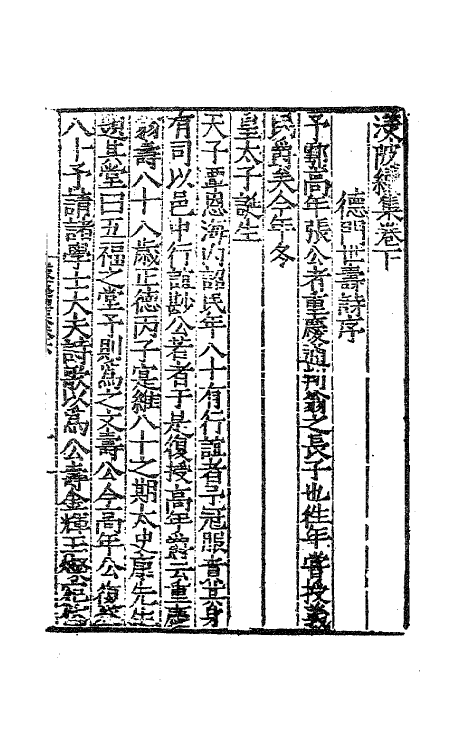 渼陂續集卷下
德門世壽詩序
予鄠高年張公者重慶通判翁之長子也往年嘗授義
民爵矣今年冬
皇太子誕生
天子覃恩海內詔民年八十有行誼者予冠服者其身
有司以邑中行誼尠公若者于是復授高年爵云重慶
翁壽八十八歲正德丙子寔維八十之期太史康先生
題其堂曰五福之堂予則為之文壽公今高年公復
八十予請諸學士大夫詩歌以為公壽金輝玉